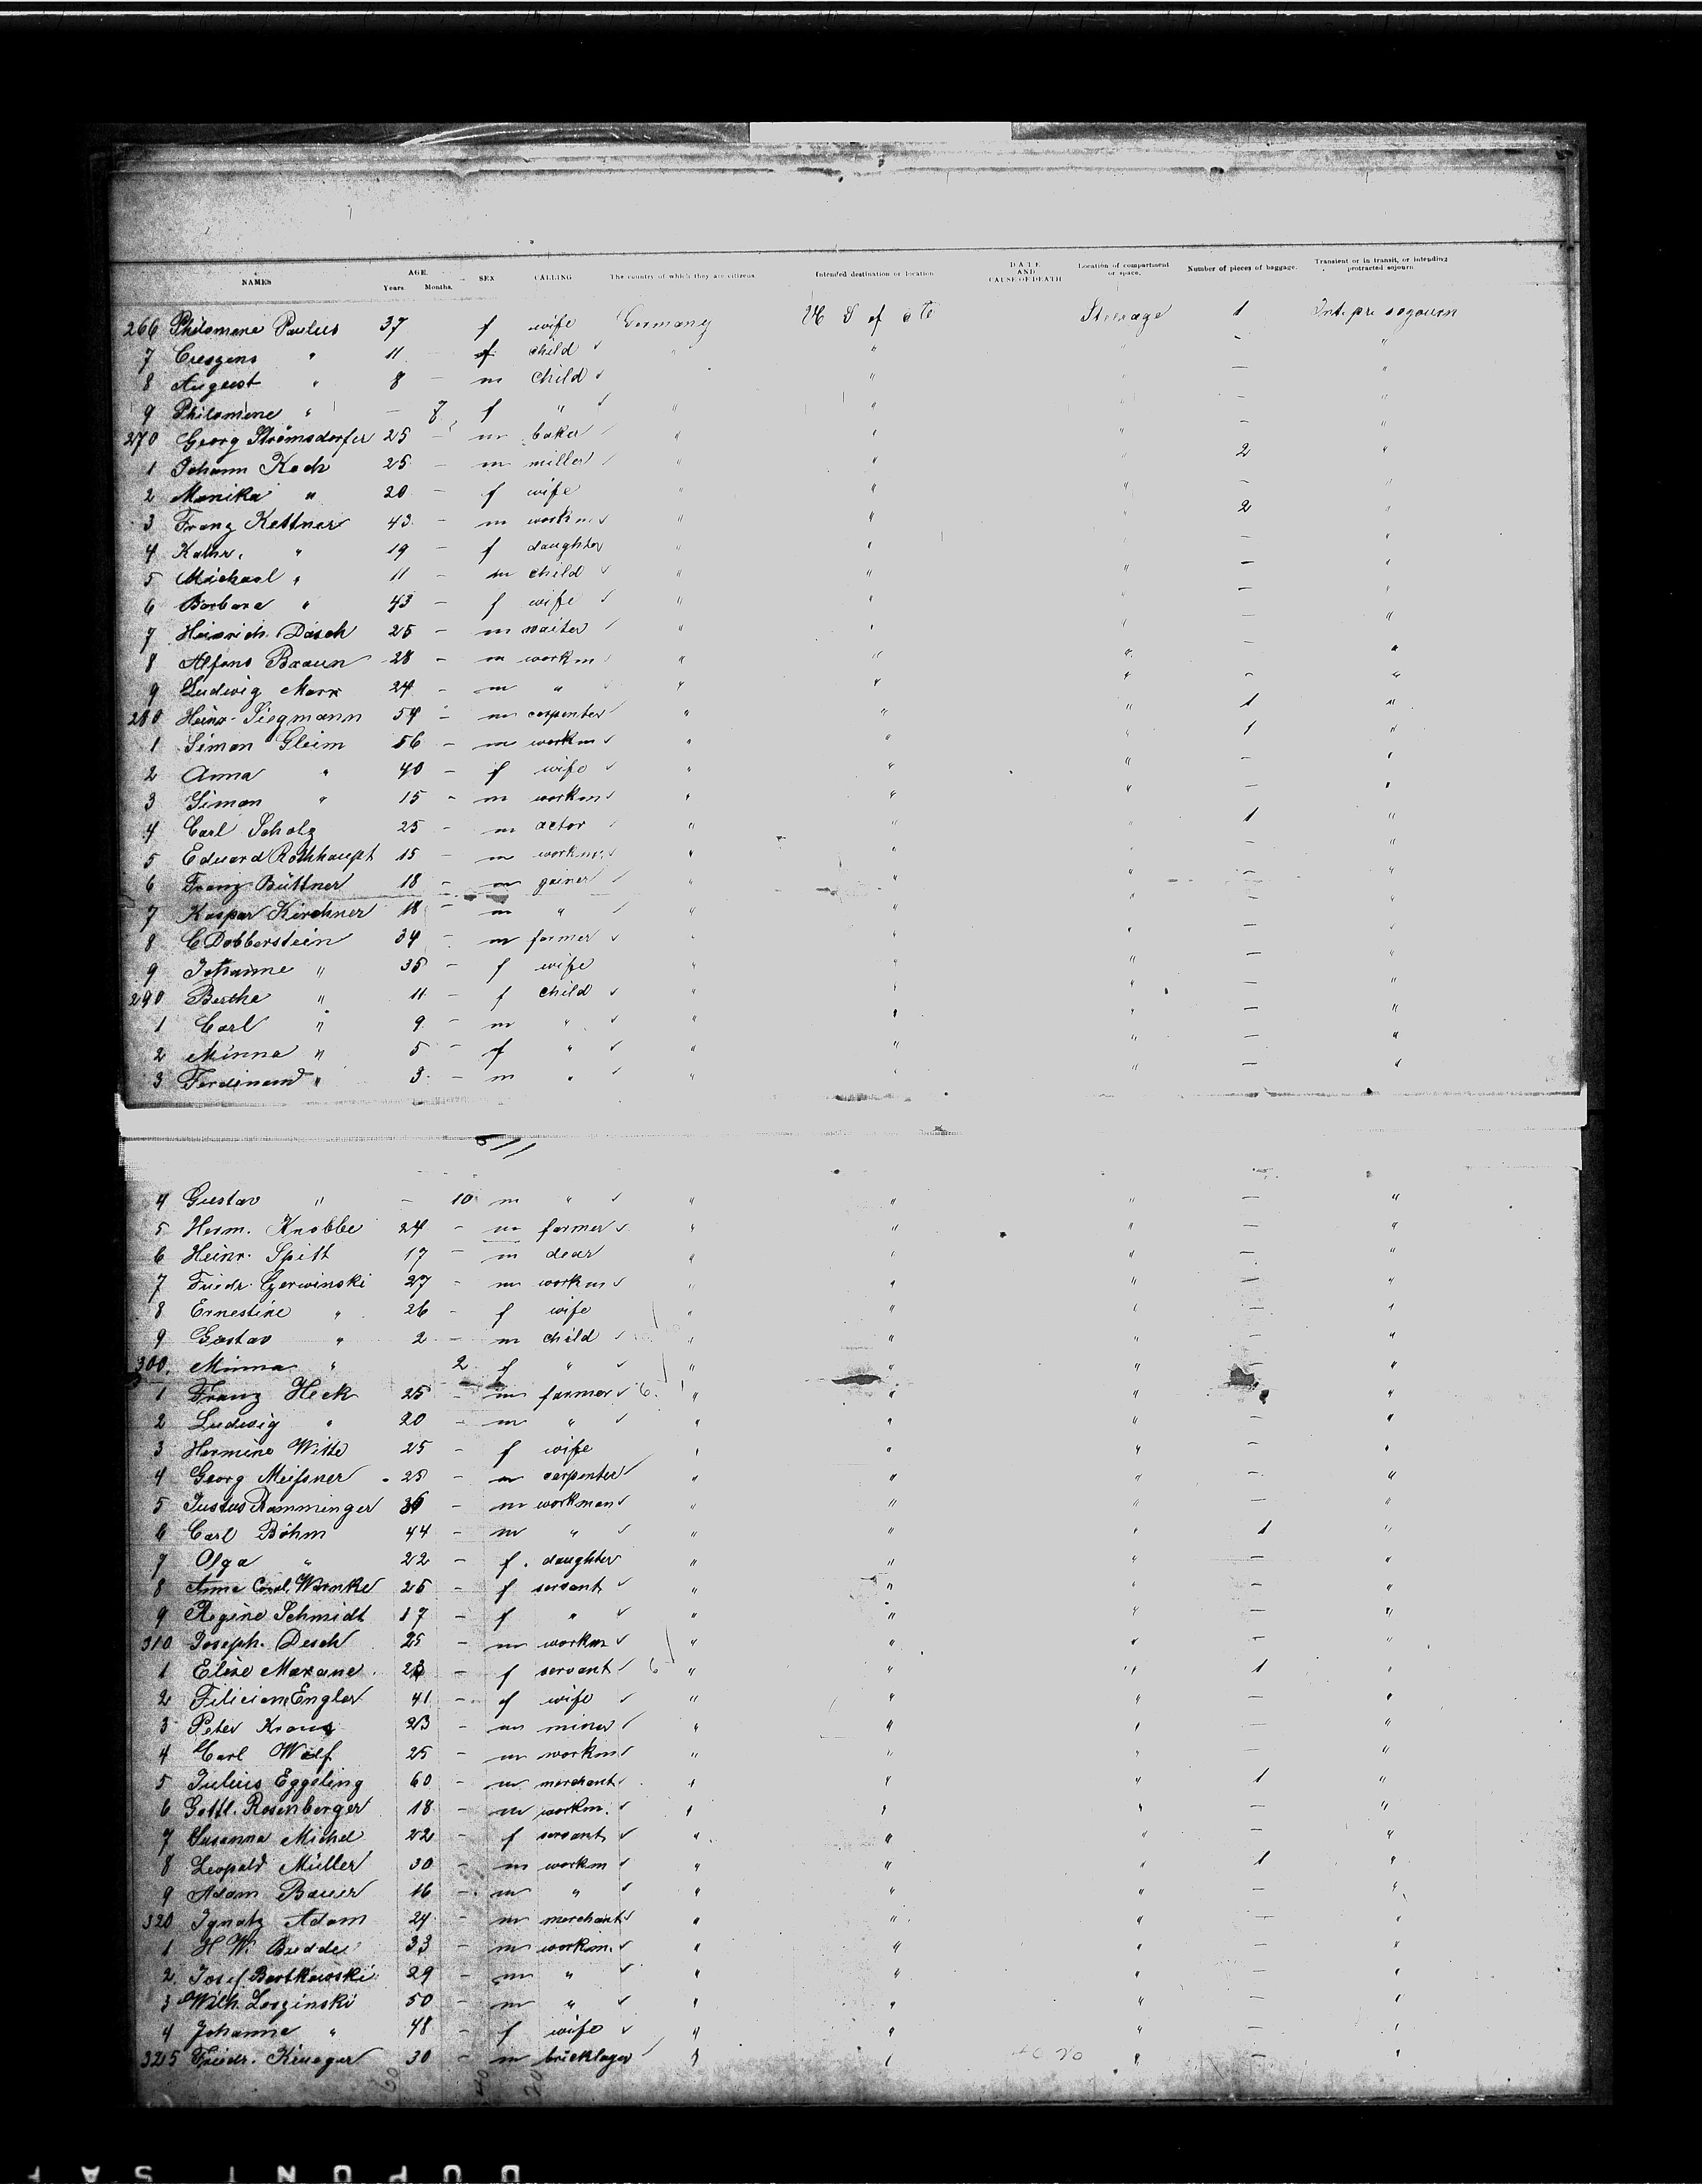 NAMES AGE. Years. Months. SEX CALLING The country of which they are citizens. Intended destination or location DATE AND CAUSE OF DEATH Location of compartment or space. Number of pieces of baggage. Transient or in transit, or intending protracted sojourn.
266 Philomene Paulus 37 f wife Germany U S of Steerage 1 Int. pr. sojourn
7 Creszens " 11 - f child " " " - "
8 August " 8 - m child " " - "
9 Philomene " - 7 f " " " - "
270 Georg 25 - m baker " " " - "
1 Johann Koch 25 - m miller " " 2 "
2 Monika " 20 - f wife " " " - "
3 Franz Kettner 43 - m workm " " 2 "
4 Kathr. " 19 - f daughter " " "
5 Michael " 11 - m child " " " - "
6 Barbara " 43 - f wife " " " - "
7 Heinrich Dasch 25 - m waiter " " " - "
8 Alfons Braun 28 - m workm " " " - "
9 Ludwig Marx 24 - m " " " " - "
280 Heinr. Siegmann 54 - m carpenter " " " 1 "
1 Simon Gleim 56 - m workm " " " 1 "
2 Anna " 40 - f wife " " " - "
3 Simon " 15 - m workm " " " - "
4 Carl Scholz 25 - m actor " " " 1 "
5 Eduard Rothhaupt 15 - m workm " " " - "
6 Franz Büttner 18 - m " " " - "
7 Kaspar Kirchner 18 - m " " " " - "
8 C Dobberstein 34 - m farmer " " " - "
9 Johanne " 35 - f wife " " " - "
290 Bertha " 11 - f child " " " - "
1 Carl " 9 - m " " " " - "
2 Minna " 5 - f " " " " - "
3 Ferdinand " 3 - m " " " " - "
4 Gustav " - 10 m " " " " - "
5 Herm. Knobbe 24 - m farmer " " " - "
6 Heinr. Spitt 17 - m " " " - "
7 Friedr. Czerwinski 27 - m workm " " " - "
8 Ernestine " 26 - f wife " " " - "
9 Gustav " 2 - m child " " " - "
300. Minna " 2 f " " " " - "
1 Franz Heck 25 - m farmer " " " "
2 Ludwig " 20 - m " " " " - "
3 Hermine Witte 25 - f wife " " " - "
4 Georg Meißner 25 - m carpenter " " " - "
5 Justus Ramminger - m workman " " " - "
6 Carl Böhm 44 - m " " " " 1 "
7 Olga " 22 - f. daughter " " " - "
8 Anna Warnke 25 - f servant " " " - "
9 Regine Schmidt 17 - f " " " " - "
310 Joseph Desch 25 - m workm " " " - "
1 Elise 23 - f servant " " " 1 "
2 Engler 41 - f wife " " " - "
3 Peter Kraus 23 - m miner " " " - "
4 Carl Wolf 25 - m workm " " " - "
5 Julius Eggeling 60 - m merchant " " " 1 "
6 Gottl. Rosenberger 18 - m workm. " " " - "
7 Susanna Michel 22 - f servant " " " - "
8 Leopold Müller 30 - m workm " " " 1 "
9 Adam Bauer 16 - m " " " " - "
320 Ignatz Adam 24 - m merchant " " " - "
1 H W. Budde 33 - m workm. " " " - "
2 Josef Bartkowski 29 - m " " " " - "
3 Wilh. 50 - m " " " " - "
4 Johanna " 48 - f wife " " " - "
325 Friedr. Krueger 30 - m bricklayer " " " - "